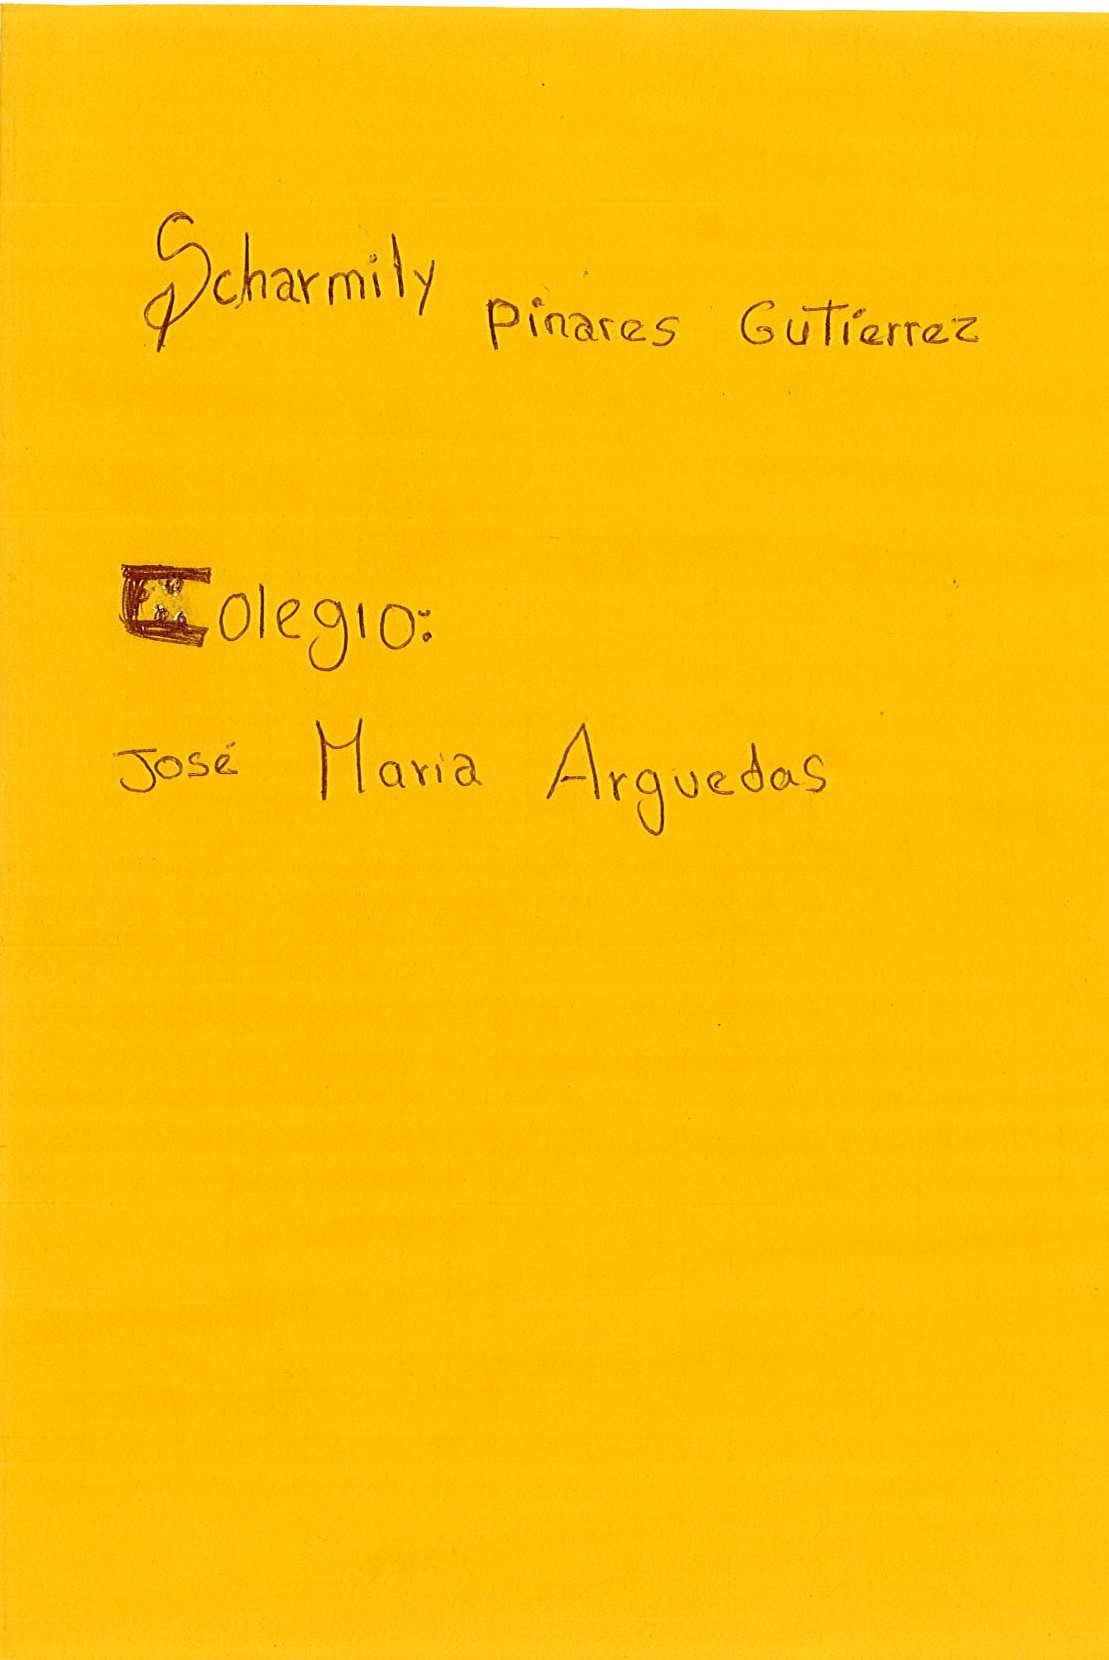 Scharmily pinares Gutierrez
Colegio:
José Maria Arguedas